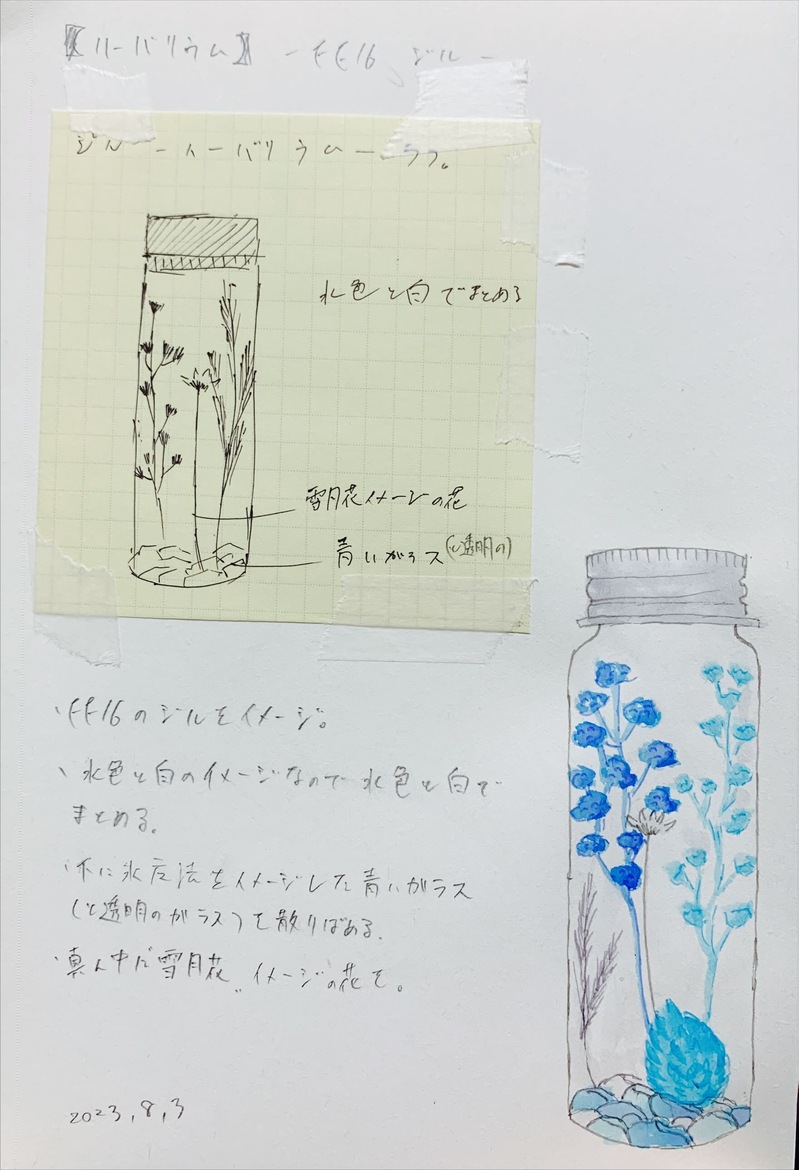 【ハーバリウム】 - FF16 ジル -
ジル - ハーバリウム - ラフ。
水色と白でまとめる
雪月花イメージの花
青いガラス(と透明の)
・FF16のジルをイメージ。
・水色と白のイメージなので水色と白で
まとめる。
・下に氷魔法をイメージした青いガラス
(と透明のガラス)を散りばめる。
・真ん中に“雪月花„イメージの花を。
2023,8,3